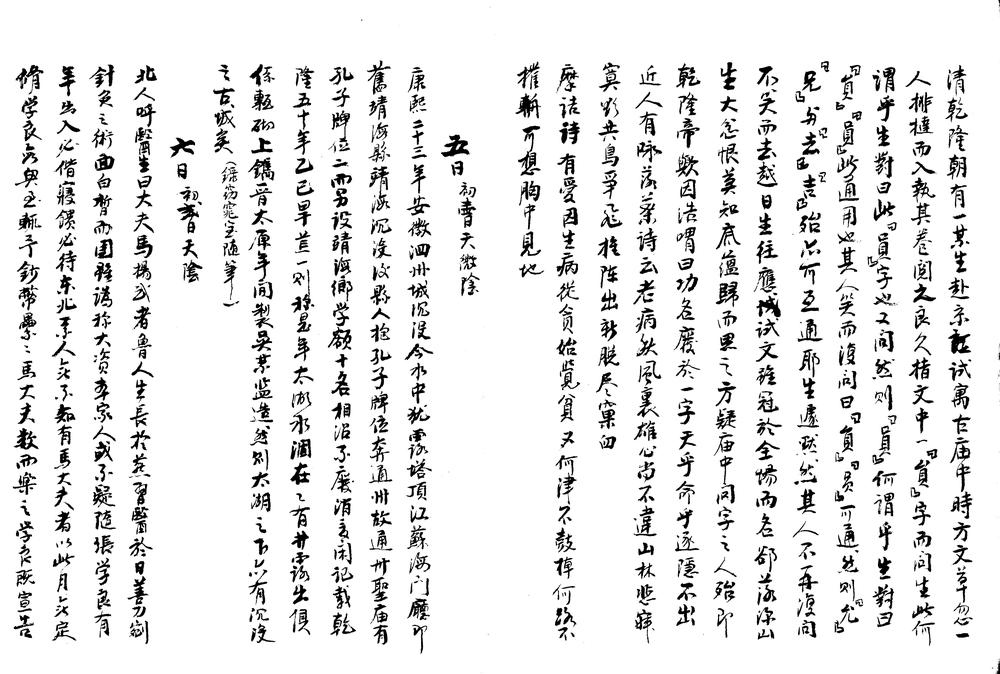 清乾隆朝有一某生赴京試寓古庙中時方文草忽一
人排撻而入執其卷閱之良久指文中一『貟』字而问生此何
謂乎生對曰此『員』字也又问然则『員』何謂乎生對曰
『貟』『員』此通用也其人笑而復问曰『貟』『员』可通然则『允』
『兄』与『去』『吉』殆亦可互通耶生遽默然其人不再復问
不笑而去越日生往應试试文雖冠於全場而名卻落深山
生大忿恨莫知底蕴歸而思之方疑庙中问字之人殆即
乾隆帝歟因浩喟曰功名廢於一字天乎命乎遂隱不出
近人有咏落葉诗云老病秋風裏雄心尚不違山林悲寐
寞影共鳥爭飞推陈出新脱尽窠臼
摩诘诗有愛因生病從貪始覺貧又何津不鼓棹何路不
摧輈可想胸中見地
五日 初春天微陰
康熙二十三年安徽泗州城沉没今水中犹露塔顶江蘇海门廳即
舊靖海縣靖海沉没故縣人抱孔子牌位奔通州故通州聖庙有
孔子牌位二而另设靖海鄉学额十名相沿不廢消夏闲记载乾
隆五十年乙巳旱荒一则称是年太湖水涸在之有井露出俱
係甎砌上鐫晋太康年间製吴某监造然则太湖之下亦有沉没
之古城矣（绿窈窕室随筆）
六日 初春天陰
北人呼醫生曰大夫馬揚武者魯人生長於燕習醫於日善刀劀
針灸之術面白皙而围雜謅称大资本家人或不疑随張学良有
年出入必偕寢饌必待东北系人亦不知有馬大夫者以此月亦定
脩学良亦與至輒予鈔幣纍之馬大夫数而樂之学良厥宣告